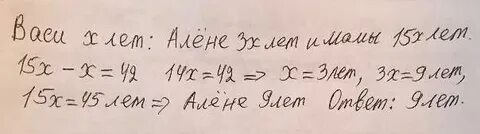 Васи х лет: Алёне 3х лет и мамы 15х лет.
15х - х = 42 14х = 42 => х = 3 лет, 3х = 9 лет,
15х = 45 лет => Алёне 9 лет Ответ: 9 лет.